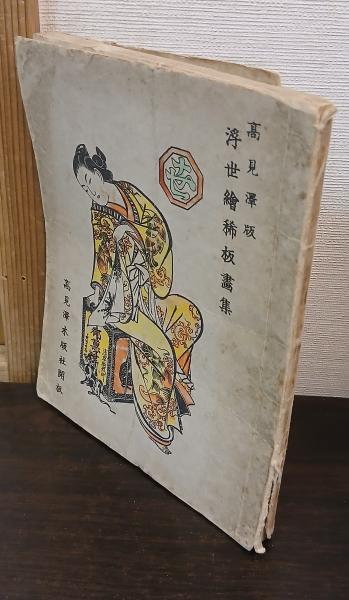 高見澤版
浮世繪稀板畫集
高見澤木版社開板